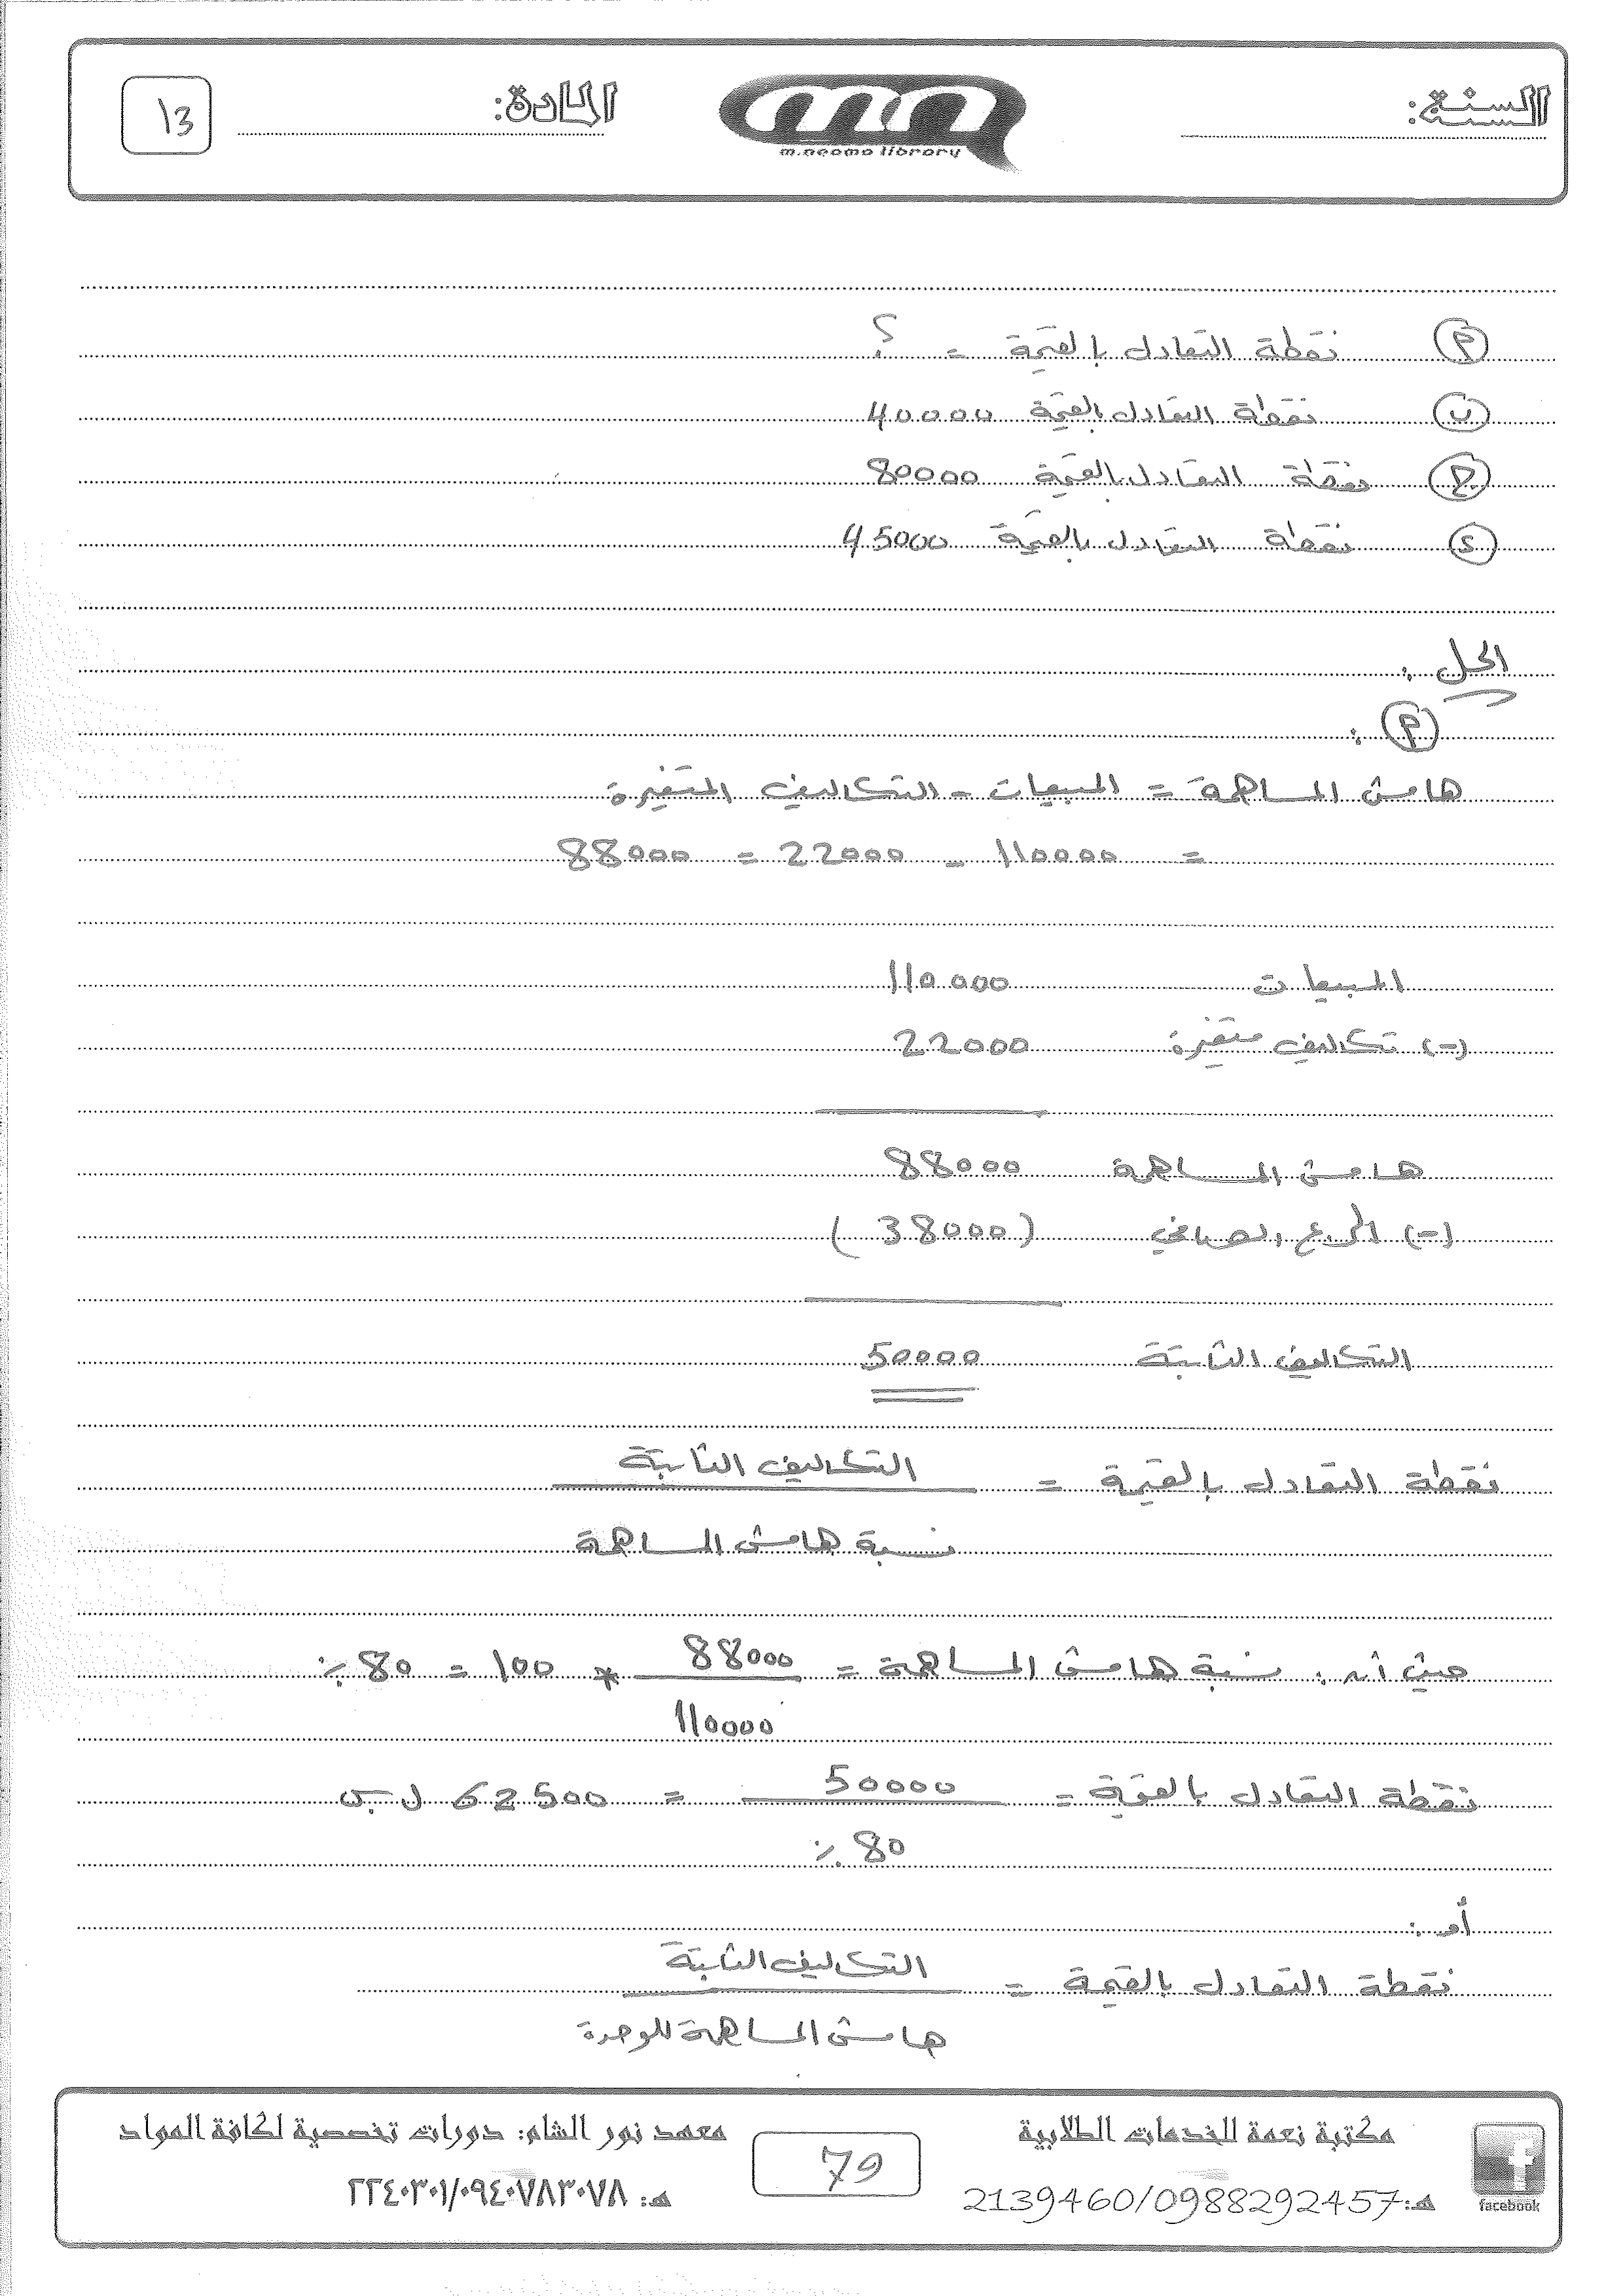 السنة:
المادة:
13
m.neoma library
أ نقطة التعادل بالقيمة = ؟
ب نقطة التعادل بالقيمة 40000
ج نقطة التعادل بالقيمة 80000
د نقطة التعادل بالقيمة 45000
الحل:
أ:
هامش المساهمة = المبيعات - التكاليف المتغيرة
= 110000 - 22000 = 88000
المبيعات 110000
(-) تكاليف متغيرة 22000
هامش المساهمة 88000
(-) الربح الصافي (38000)
التكاليف الثابتة 50000
نقطة التعادل بالقيمة = التكاليف الثابتة
نسبة هامش المساهمة
حيث أن: نسبة هامش المساهمة = 88000 * 100 = 80 ٪
110000
نقطة التعادل بالقيمة = 50000 = 62500 ل.س
80 ٪
أو:
نقطة التعادل بالقيمة = التكاليف الثابتة
هامش المساهمة للوحدة
مكتبة نعمة للخدمات الطلابية
هـ: 2139460/0988292457
facebook
79
معهد نور الشام: دورات تخصصية لكافة المواد
هـ: ٢٢٤٠٣٠١/٠٩٤٠٧٨٣٠٧٨